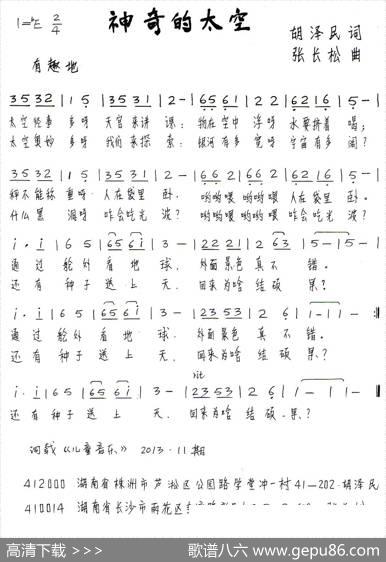 1=♭E 2/4 神奇的太空 胡泽民 词
张长松 曲
有趣地
3532 | 1 5 | 3531 | 2 - | 6561 | 2 2 | 6216 | 5 - |
太空轶事 多呀 天宫来讲 课： 物在空中 浮呀 水要挤着 喝；
太空奥妙 多呀 我们来探 索： 银河有多 宽呀 宇宙有多 阔？
3532 | 1 5 | 3531 | 2 - | 66 2 | 66 2 | 6216 | 5 - |
秤不能称 重呀 人在袋里 卧。 哟哟喂 哟哟喂 人在袋里 卧。
什么黑 洞呀 咋会吃光 波？ 哟哟喂 哟哟喂 咋会吃光 波？
i· i | 6 5 | 65 6i | 3 - | 222 21 | 2 63 | 5 - | 5 - |
通过舱外看地 球， 外面景色真不 错。
还有种子送上 天， 回来为啥结硕 果？
i· i | 6 5 | 65 6i | 3 - | 2353 | 2 6 | 1 - | 1 - :||
通过舱外看地 球， 外面景色真不 错。
还有种子送上 天， 回来为啥结硕 果？
rit
i· i | 6 5 | 65 6i | 3 - | 2353 | 2 6 | 1 - | 1 - ||
还有种子送上 天， 回来为啥结硕 果？
词载《儿童音乐》 2013·11期
412000 湖南省株洲市芦淞区公园路学堂冲一村41—202·胡泽民
410014 湖南省长沙市雨花区
高清下载 >>> 歌谱八六 www.gepu86.com